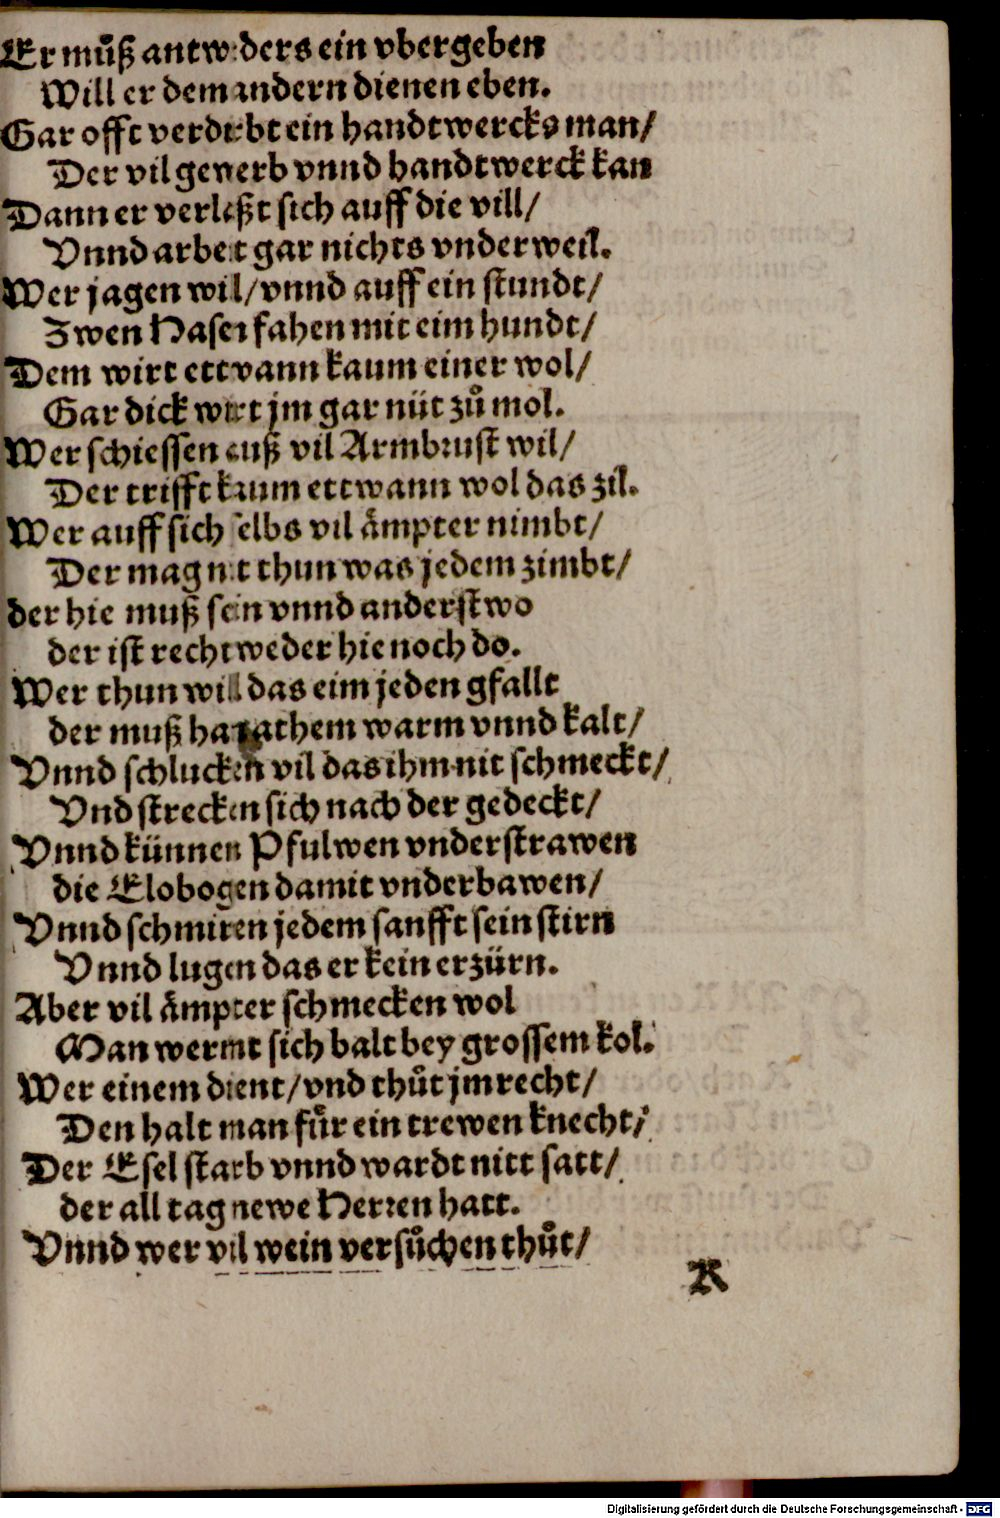 Er můß antweders ein vbergeben
Will er dem andern dienen eben.
Gar offt verdirbt ein handtwercks man/
Der vil gewerb vnnd handtwerck kan
Dann er verleßt sich auff die vill/
Vnnd arbeit gar nichts vnderweil.
Wer jagen wil/vnnd auff ein stundt/
Zwen Hasen fahen mit eim hundt/
Dem wirt ettwann kaum einer wol/
Gar dick wirt jm gar nüt zů mol.
Wer schiessen auß vil Armbrust wil/
Der trifft kaum ettwann wol das zil.
Wer auff sich selbs vil ämpter nimbt/
Der mag nit thun was jedem zimbt/
der hie muß sein vnnd anderstwo
der ist recht weder hie noch do.
Wer thun will das eim jeden gfallt
der muß han athem warm vnnd kalt/
Vnnd schlucken vil das ihm nit schmeckt/
Vnd strecken sich nach der gedeckt/
Vnnd künnen Pfulwen vnderstrawen
die Elobogen damit vnderbawen/
Vnnd schmiren jedem sanfft sein stirn
Vnnd lugen das er kein erzürn.
Aber vil ämpter schmecken wol
Man wermt sich balt bey grossem kol.
Wer einem dient/vnd thůt jm recht/
Den halt man für ein trewen knecht/
Der Esel starb vnnd wardt nitt satt/
der all tag newe Herren hatt.
Vnnd wer vil wein versůchen thůt/
R
Digitalisierung gefördert durch die Deutsche Forschungsgemeinschaft - DFG